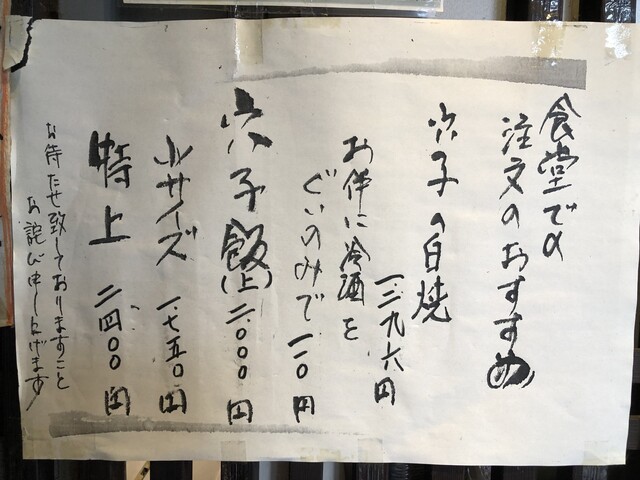 食堂での
注文のおすすめ
穴子の白焼
一三九六円
お伴に冷酒を
ぐいのみで一一〇円
穴子飯(上)二〇〇〇円
小サイズ 一七五〇円
特上 二四〇〇円
お待たせ致しておりますこと
お詫び申し上げます